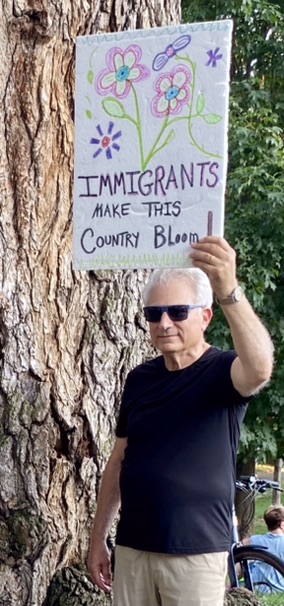 IMMIGRANTS
MAKE THIS
COUNTRY BLOOM!